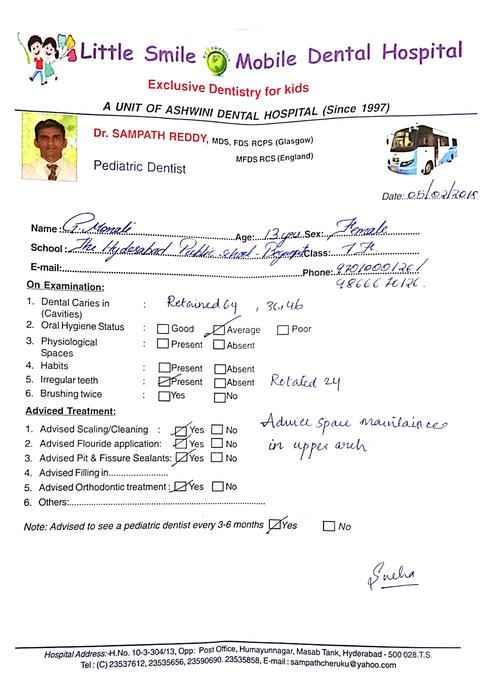 Little Smile Mobile Dental Hospital
Exclusive Dentistry for kids
A UNIT OF ASHWINI DENTAL HOSPITAL (Since 1997)
Dr. SAMPATH REDDY, MDS, FDS RCPS (Glasgow)
MFDS RCS (England)
Pediatric Dentist
Date: 05/02/2018
Name: G. Monali Age: 13 yrs Sex: Female
School: The Hyderabad Public School - Begumpet Class: 7 F
E-mail: Phone:
On Examination:
1. Dental Caries in (Cavities) : Retained 64, 36, 46
2. Oral Hygiene Status : Good Average Poor
3. Physiological Spaces : Present Absent
4. Habits : Present Absent
5. Irregular teeth : Present Absent Rotated 24
6. Brushing twice : Yes No
Adviced Treatment:
1. Advised Scaling/Cleaning : Yes No
2. Advised Flouride application: Yes No
3. Advised Pit & Fissure Sealants: Yes No
4. Advised Filling in
5. Advised Orthodontic treatment: Yes No
6. Others:
Advice space maintainer
in upper arch
Note: Advised to see a pediatric dentist every 3-6 months Yes No
Sneha
Hospital Address:-H.No. 10-3-304/13, Opp: Post Office, Humayunnagar, Masab Tank, Hyderabad - 500 028.T.S.
Tel : (C) 23537612, 23535656, 23590690. 23535858, E-mail : sampathcheruku@yahoo.com